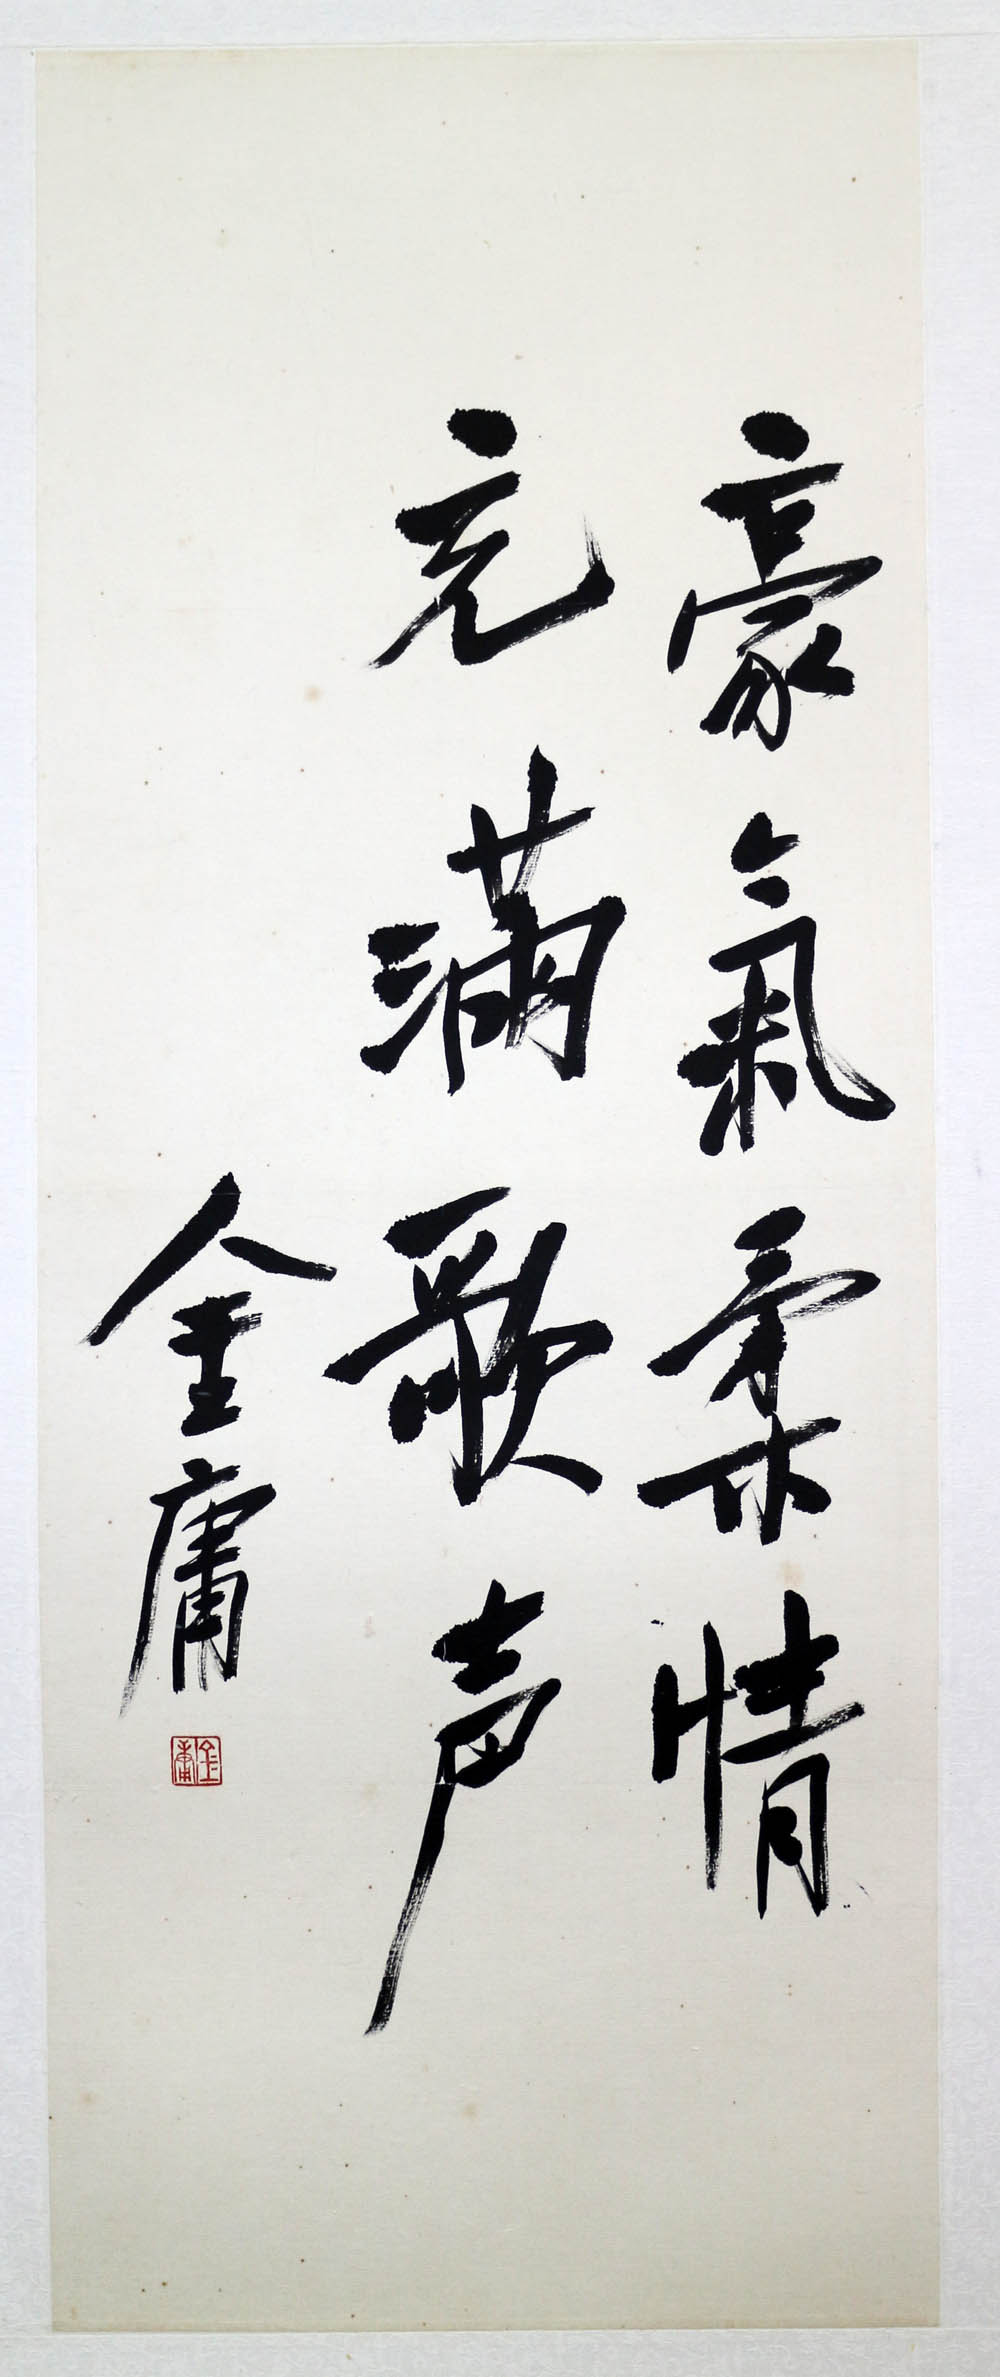 豪氣柔情
充滿歌声
金庸
金庸